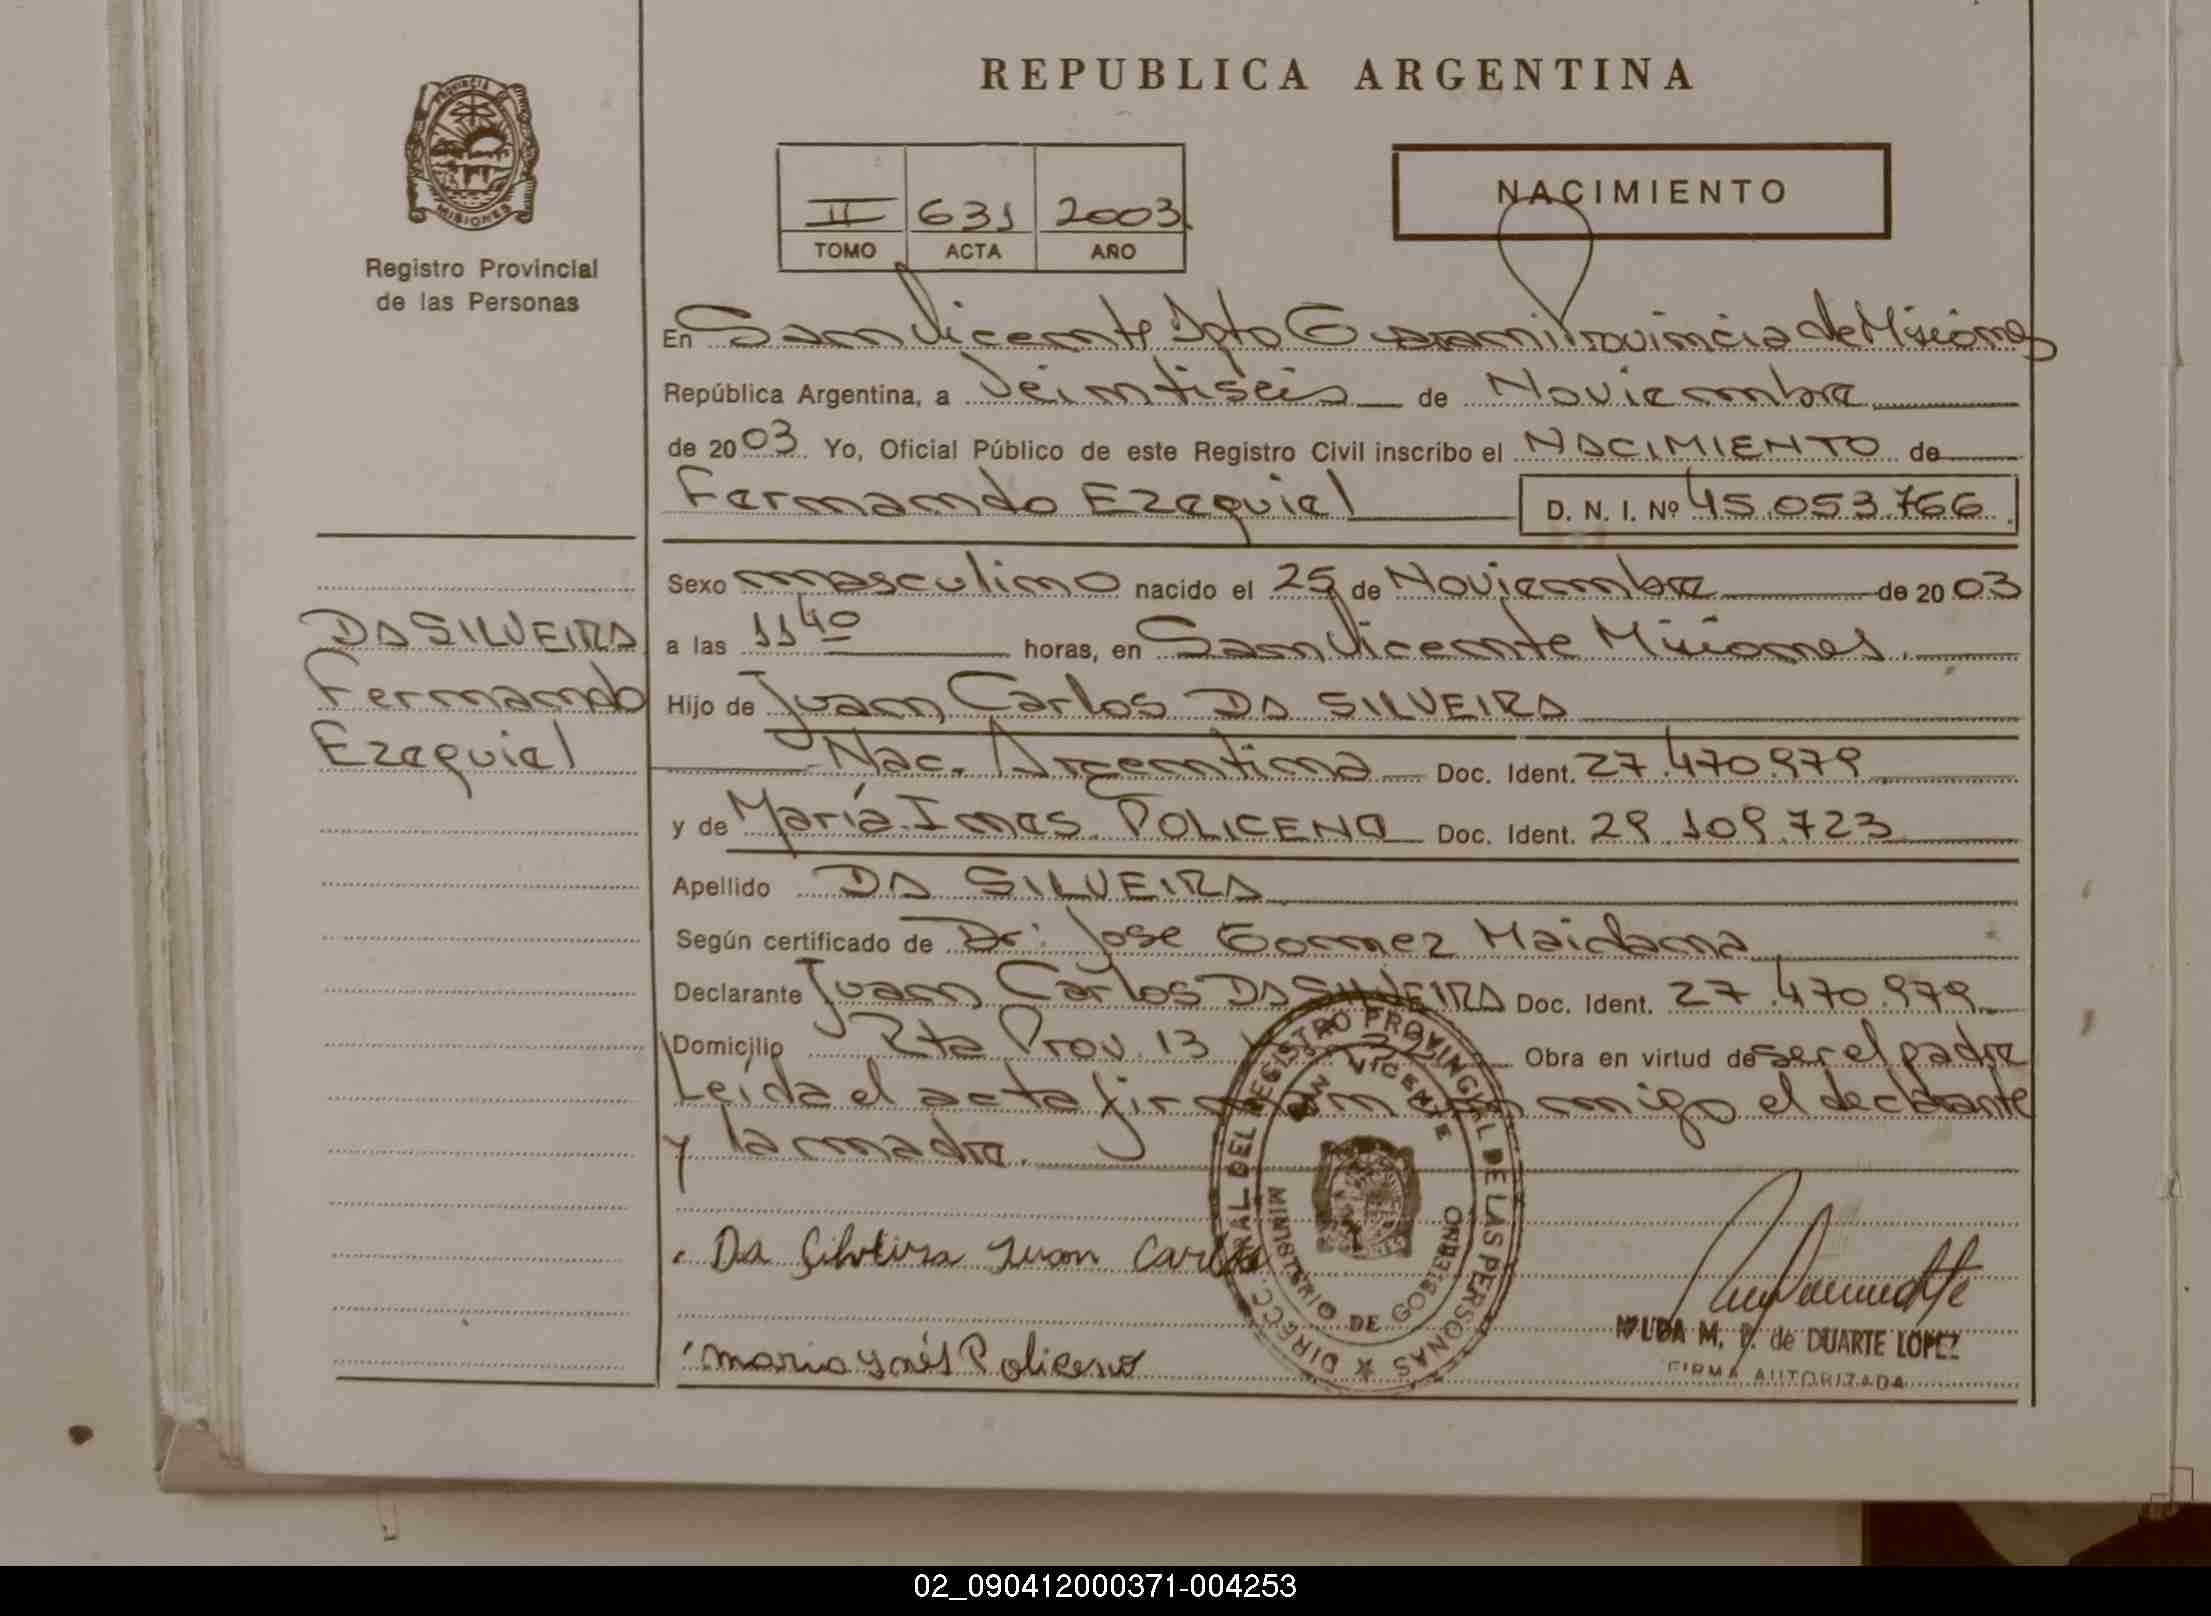 REPUBLICA ARGENTINA
PROVINCIA DE
MISIONES
Registro Provincial
de las Personas
II 631 2003
TOMO ACTA AÑO
NACIMIENTO
En San Vicente Dpto Guarani Provincia de Misiones
República Argentina, a Veintiseis de Noviembre
de 2003 Yo, Oficial Público de este Registro Civil inscribo el NACIMIENTO de
Fernando Ezequiel D. N. I. Nº 45.053.766
Sexo masculino nacido el 25 de Noviembre de 2003
a las 11 40 horas, en San Vicente Misiones.
Hijo de Juan Carlos DA SILVEIRA
Nac. Argentina Doc. Ident. 27.470.979
y de María Ines POLICENO Doc. Ident. 29.109.723
Apellido DA SILVEIRA
Según certificado de Dr: Jose Gomez Maidana
Declarante Juan Carlos DA SILVEIRA Doc. Ident. 27.470.979
Domicilio Rta Prov. 13 Obra en virtud de ser el padre
Leída el acta firman conmigo el declarante
y la madre.
DA SILVEIRA
Fernando
Ezequiel
Da Silveira Juan Carlos
maria ynés Policeno
DIRECC. GRAL. DEL REGISTRO PROVINCIAL DE LAS PERSONAS
SAN VICENTE
MINISTERIO DE GOBIERNO
M. de DUARTE LOPEZ
FIRMA AUTORIZADA
02_090412000371-004253